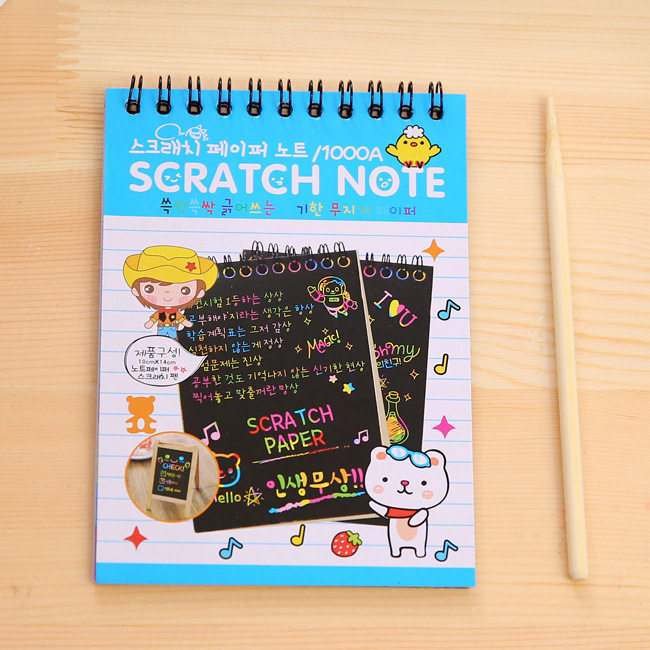 스크래치 페이퍼 노트 /1000A
SCRATCH NOTE
쓱싹쓱싹 긁어쓰는 기한 무지개 페이퍼
시험 1등하는 상상
공부해야지라는 생각은 항상
학습계획표는 그저 감상
실천하지 않는게 정상
시험문제는 진상
공부한 것도 기억나지 않는 신기한 현상
찍어놓고 맞출꺼란 망상
MAGIC!
I U
oh my
제품구성!
10cmX14cm
노트페이퍼
스크래치 펜
SCRATCH
PAPER
CHECK!
Hello
인생무상!!